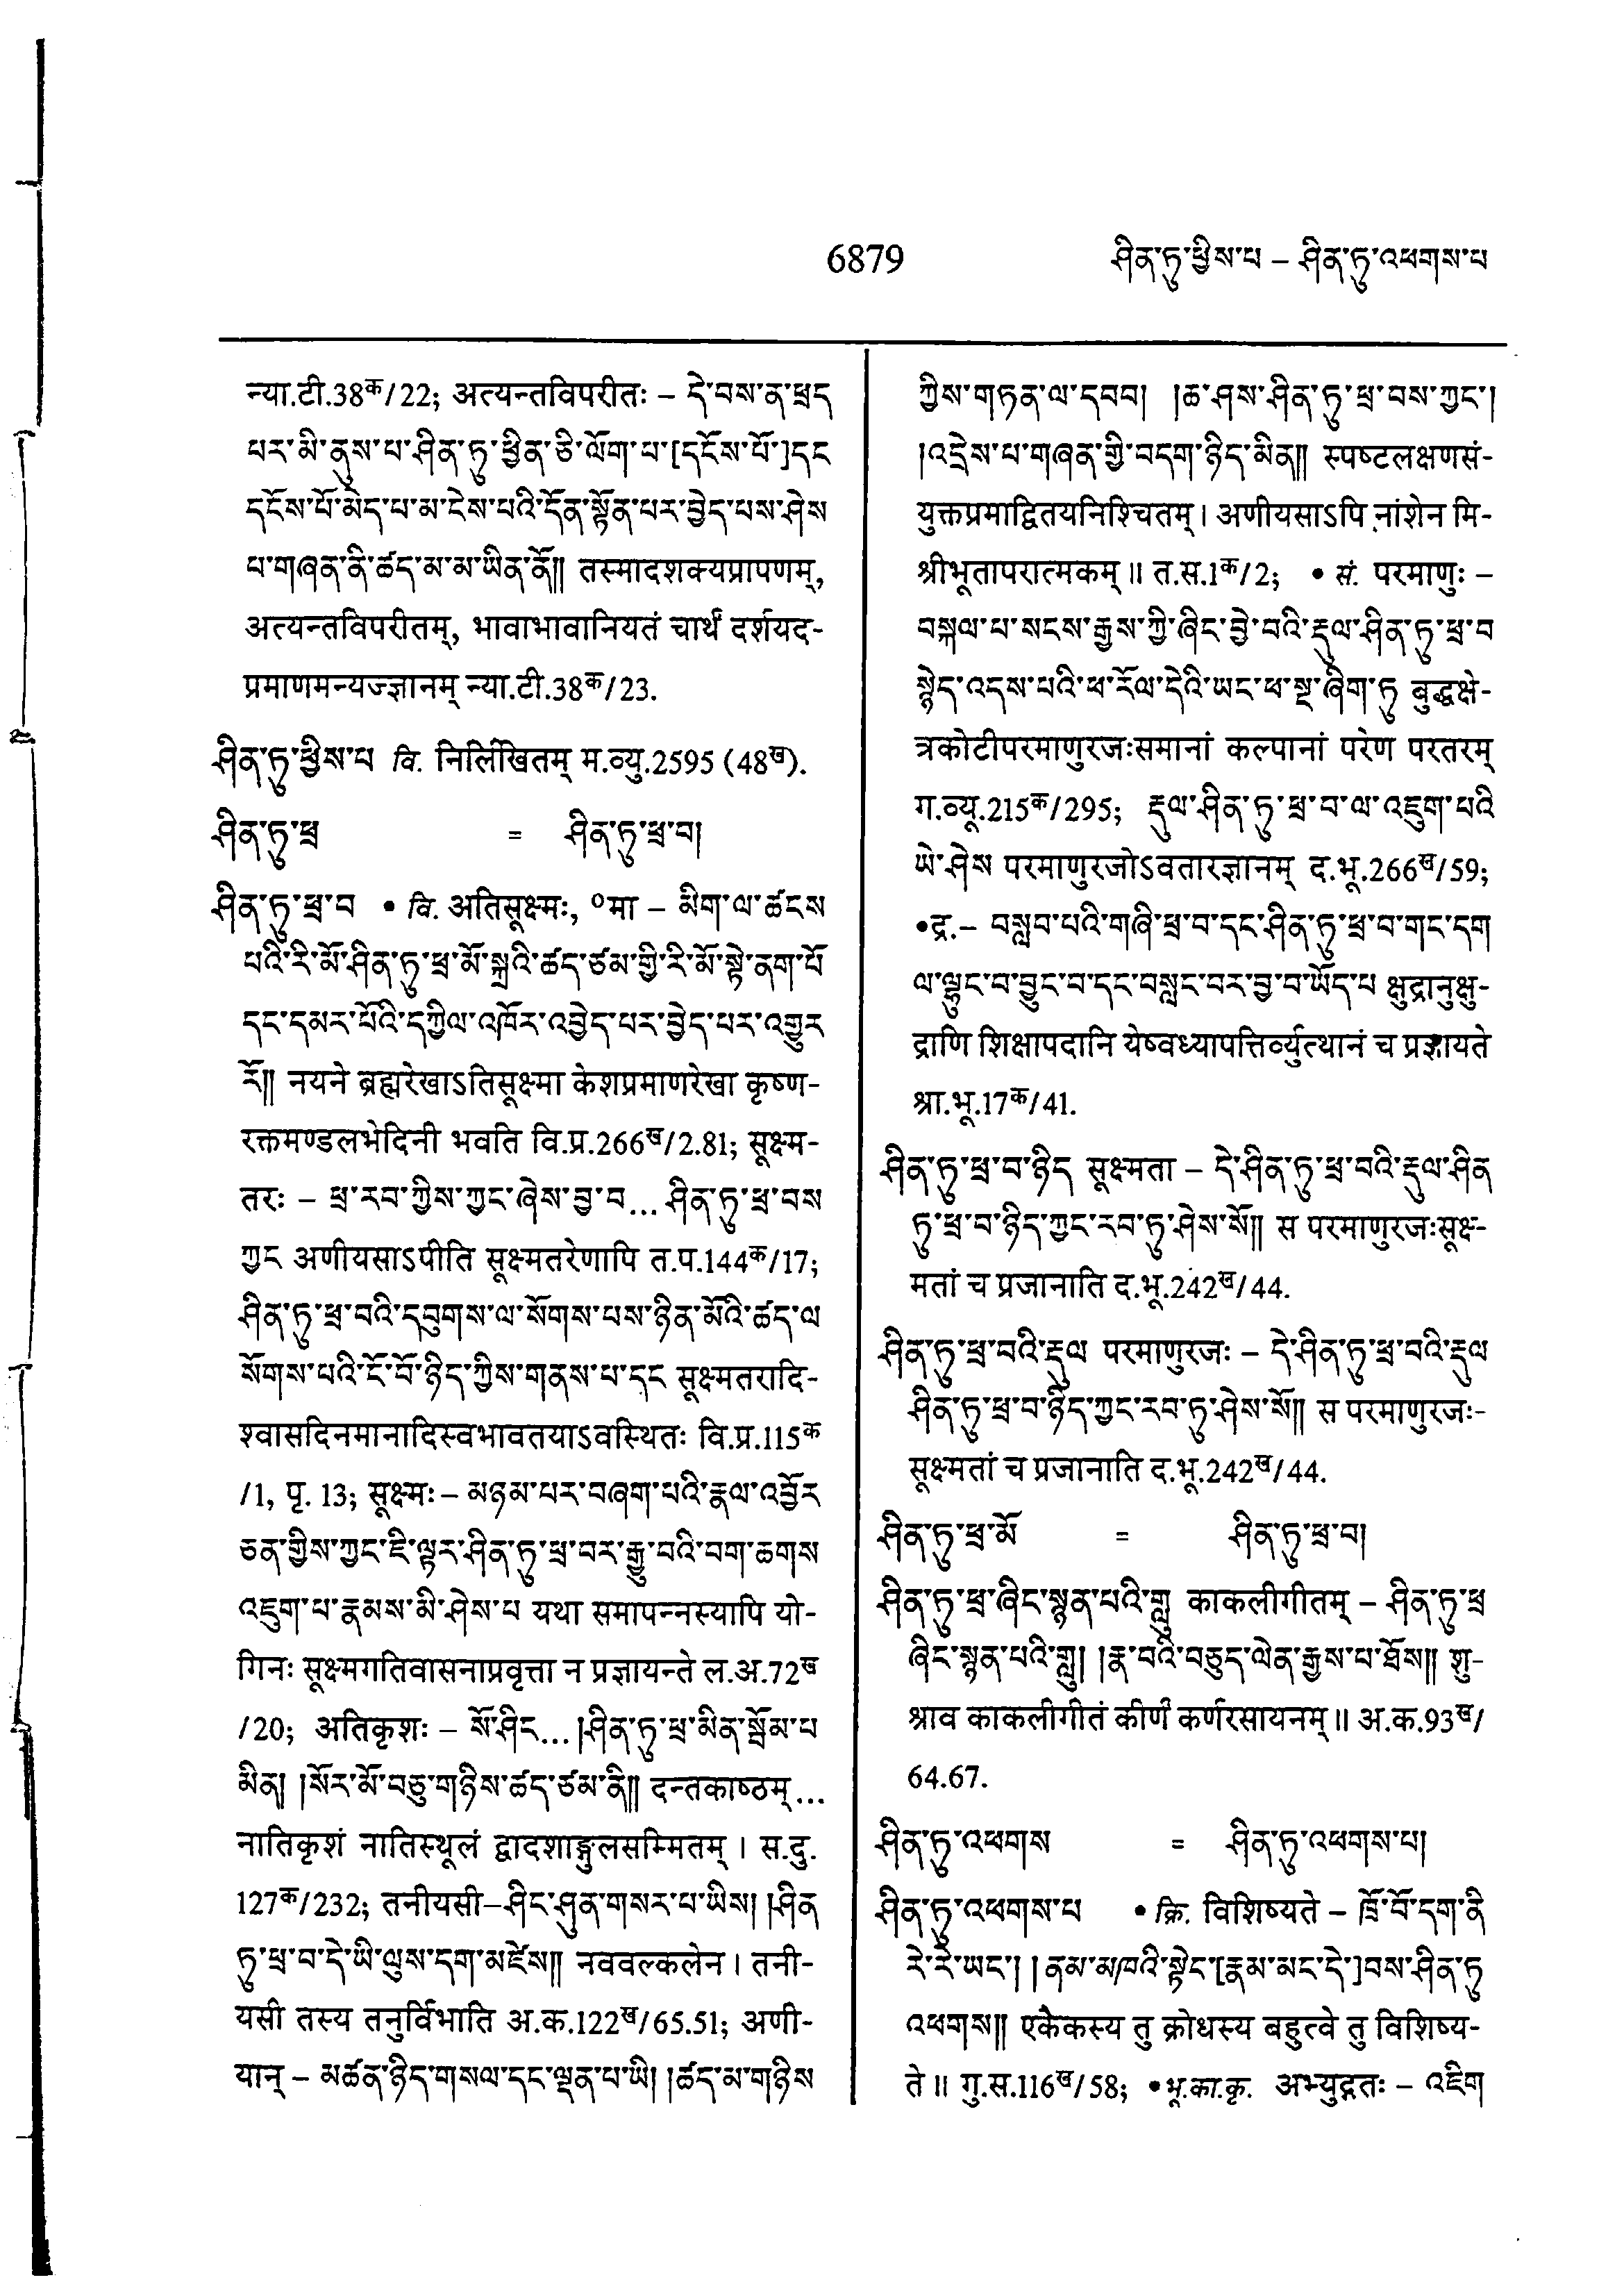 6879 ཤིན་ཏུ་ཕྱིས་པ – ཤིན་ཏུ་འཕགས་པ
न्या.टी.38क/22; अत्यन्तविपरीतः – དེ་བས་ན་ཕྲད
པར་མི་ནུས་པ་ཤིན་ཏུ་ཕྱིན་ཅི་ལོག་པ་[དངོས་པོ་]དང
དངོས་པོ་མེད་པ་མ་ངེས་པའི་དོན་སྟོན་པར་བྱེད་པས་ཤེས
པ་གཞན་ནི་ཚད་མ་མ་ཡིན་ནོ།། तस्मादशक्यप्रापणम्,
अत्यन्तविपरीतम्, भावाभावानियतं चार्थं दर्शयद-
प्रमाणमन्यज्ज्ञानम् न्या.टी.38क/23.
ཤིན་ཏུ་ཕྱིས་པ वि. निर्लिखितम् म.व्यु.2595 (48ख).
ཤིན་ཏུ་ཕྲ = ཤིན་ཏུ་ཕྲ་བ།
ཤིན་ཏུ་ཕྲ་བ • वि. अतिसूक्ष्मः, ०मा – མིག་ལ་ཚངས
པའི་རི་མོ་ཤིན་ཏུ་ཕྲ་མོ་སྐྲའི་ཚད་ཙམ་གྱི་རི་མོ་སྟེ་ནག་པོ
དང་དམར་པོའི་དཀྱིལ་འཁོར་འབྱེད་པར་བྱེད་པར་འགྱུར
རོ།། नयने ब्रह्मरेखाऽतिसूक्ष्मा केशप्रमाणरेखा कृष्ण-
रक्तमण्डलभेदिनी भवति वि.प्र.266ख/2.81; सूक्ष्म-
तरः – ཕྲ་རབ་ཀྱིས་ཀྱང་ཞེས་བྱ་བ... ཤིན་ཏུ་ཕྲ་བས
ཀྱང अणीयसाऽपीति सूक्ष्मतरेणापि त.प.144क/17;
ཤིན་ཏུ་ཕྲ་བའི་དབུགས་ལ་སོགས་པས་ཉིན་མོའི་ཚད་ལ
སོགས་པའི་ངོ་བོ་ཉིད་ཀྱིས་གནས་པ་དང सूक्ष्मतरादि-
श्वासदिनमानादिस्वभावतयाऽवस्थितः वि.प्र.115क
/1, पृ. 13; सूक्ष्मः – མཉམ་པར་བཞག་པའི་རྣལ་འབྱོར
ཅན་གྱིས་ཀྱང་ཇི་ལྟར་ཤིན་ཏུ་ཕྲ་བར་རྒྱུ་བའི་བག་ཆགས
འཇུག་པ་རྣམས་མི་ཤེས་པ यथा समापन्नस्यापि यो-
गिनः सूक्ष्मगतिवासनाप्रवृत्ता न प्रज्ञायन्ते ल.अ.72ख
/20; अतिकृशः – སོ་ཤིང... །ཤིན་ཏུ་ཕྲ་མིན་སྦོམ་པ
མིན། །སོར་མོ་བཅུ་གཉིས་ཚད་ཙམ་ནི།། दन्तकाष्ठम्...
नातिकृशं नातिस्थूलं द्वादशाङ्गुलसम्मितम् । स.दु.
127क/232; तनीयसी–ཤིང་ཤུན་གསར་པ་ཡིས། །ཤིན
ཏུ་ཕྲ་བ་དེ་ཡི་ལུས་དག་མཛེས།། नववल्कलेन । तनी-
यसी तस्य तनुर्विभाति अ.क.122ख/65.51; अणी-
यान् – མཚན་ཉིད་གསལ་དང་ལྡན་པ་ཡི། །ཚད་མ་གཉིས
ཀྱིས་གཏན་ལ་དབབ། །ཆ་ཤས་ཤིན་ཏུ་ཕྲ་བས་ཀྱང་།
།འདྲེས་པ་གཞན་གྱི་བདག་ཉིད་མིན།། स्पष्टलक्षणसं-
युक्तप्रमाद्वितयनिश्चितम् । अणीयसाऽपि नांशेन मि-
श्रीभूतापरात्मकम् ॥ त.स.1क/2; • सं. परमाणुः –
བསྐལ་པ་སངས་རྒྱས་ཀྱི་ཞིང་བྱེ་བའི་རྡུལ་ཤིན་ཏུ་ཕྲ་བ
སྙེད་འདས་པའི་ཕ་རོལ་དེའི་ཡང་ཕ་སྔ་ཞིག་ཏུ बुद्धक्षे-
त्रकोटीपरमाणुरजःसमानां कल्पानां परेण परतरम्
ग.व्यू.215क/295; རྡུལ་ཤིན་ཏུ་ཕྲ་བ་ལ་འཇུག་པའི
ཡེ་ཤེས परमाणुरजोऽवतारज्ञानम् द.भू.266ख/59;
•द्र.– བསླབ་པའི་གཞི་ཕྲ་བ་དང་ཤིན་ཏུ་ཕྲ་བ་གང་དག
ལ་ལྟུང་བ་བྱུང་བ་དང་བསླང་བར་བྱ་བ་ཡོད་པ क्षुद्रानुक्षु-
द्राणि शिक्षापदानि येष्वध्यापत्तिर्व्युत्थानं च प्रज्ञायते
श्रा.भू.17क/41.
ཤིན་ཏུ་ཕྲ་བ་ཉིད सूक्ष्मता – དེ་ཤིན་ཏུ་ཕྲ་བའི་རྡུལ་ཤིན
ཏུ་ཕྲ་བ་ཉིད་ཀྱང་རབ་ཏུ་ཤེས་སོ།། स परमाणुरजःसूक्ष्-
मतां च प्रजानाति द.भू.242ख/44.
ཤིན་ཏུ་ཕྲ་བའི་རྡུལ परमाणुरजः – དེ་ཤིན་ཏུ་ཕྲ་བའི་རྡུལ
ཤིན་ཏུ་ཕྲ་བ་ཉིད་ཀྱང་རབ་ཏུ་ཤེས་སོ།། स परमाणुरजः-
सूक्ष्मतां च प्रजानाति द.भू.242ख/44.
ཤིན་ཏུ་ཕྲ་མོ = ཤིན་ཏུ་ཕྲ་བ།
ཤིན་ཏུ་ཕྲ་ཞིང་སྙན་པའི་གླུ काकलीगीतम् – ཤིན་ཏུ་ཕྲ
ཞིང་སྙན་པའི་གླུ། །རྣ་བའི་བཅུད་ལེན་རྒྱས་པ་ཐོས།། शु-
श्राव काकलीगीतं कीर्णं कर्णरसायनम् ॥ अ.क.93ख/
64.67.
ཤིན་ཏུ་འཕགས = ཤིན་ཏུ་འཕགས་པ།
ཤིན་ཏུ་འཕགས་པ • क्रि. विशिष्यते – ཁྲོ་བོ་དག་ནི
རེ་རེ་ཡང་། །ནམ་མཁའི་སྟེང་[རྣམ་མང་དེ་]བས་ཤིན་ཏུ
འཕགས།། एकैकस्य तु क्रोधस्य बहुत्वे तु विशिष्य-
ते ॥ गु.स.116ख/58; •भू.का.कृ. अभ्युद्गतः – འཇིག